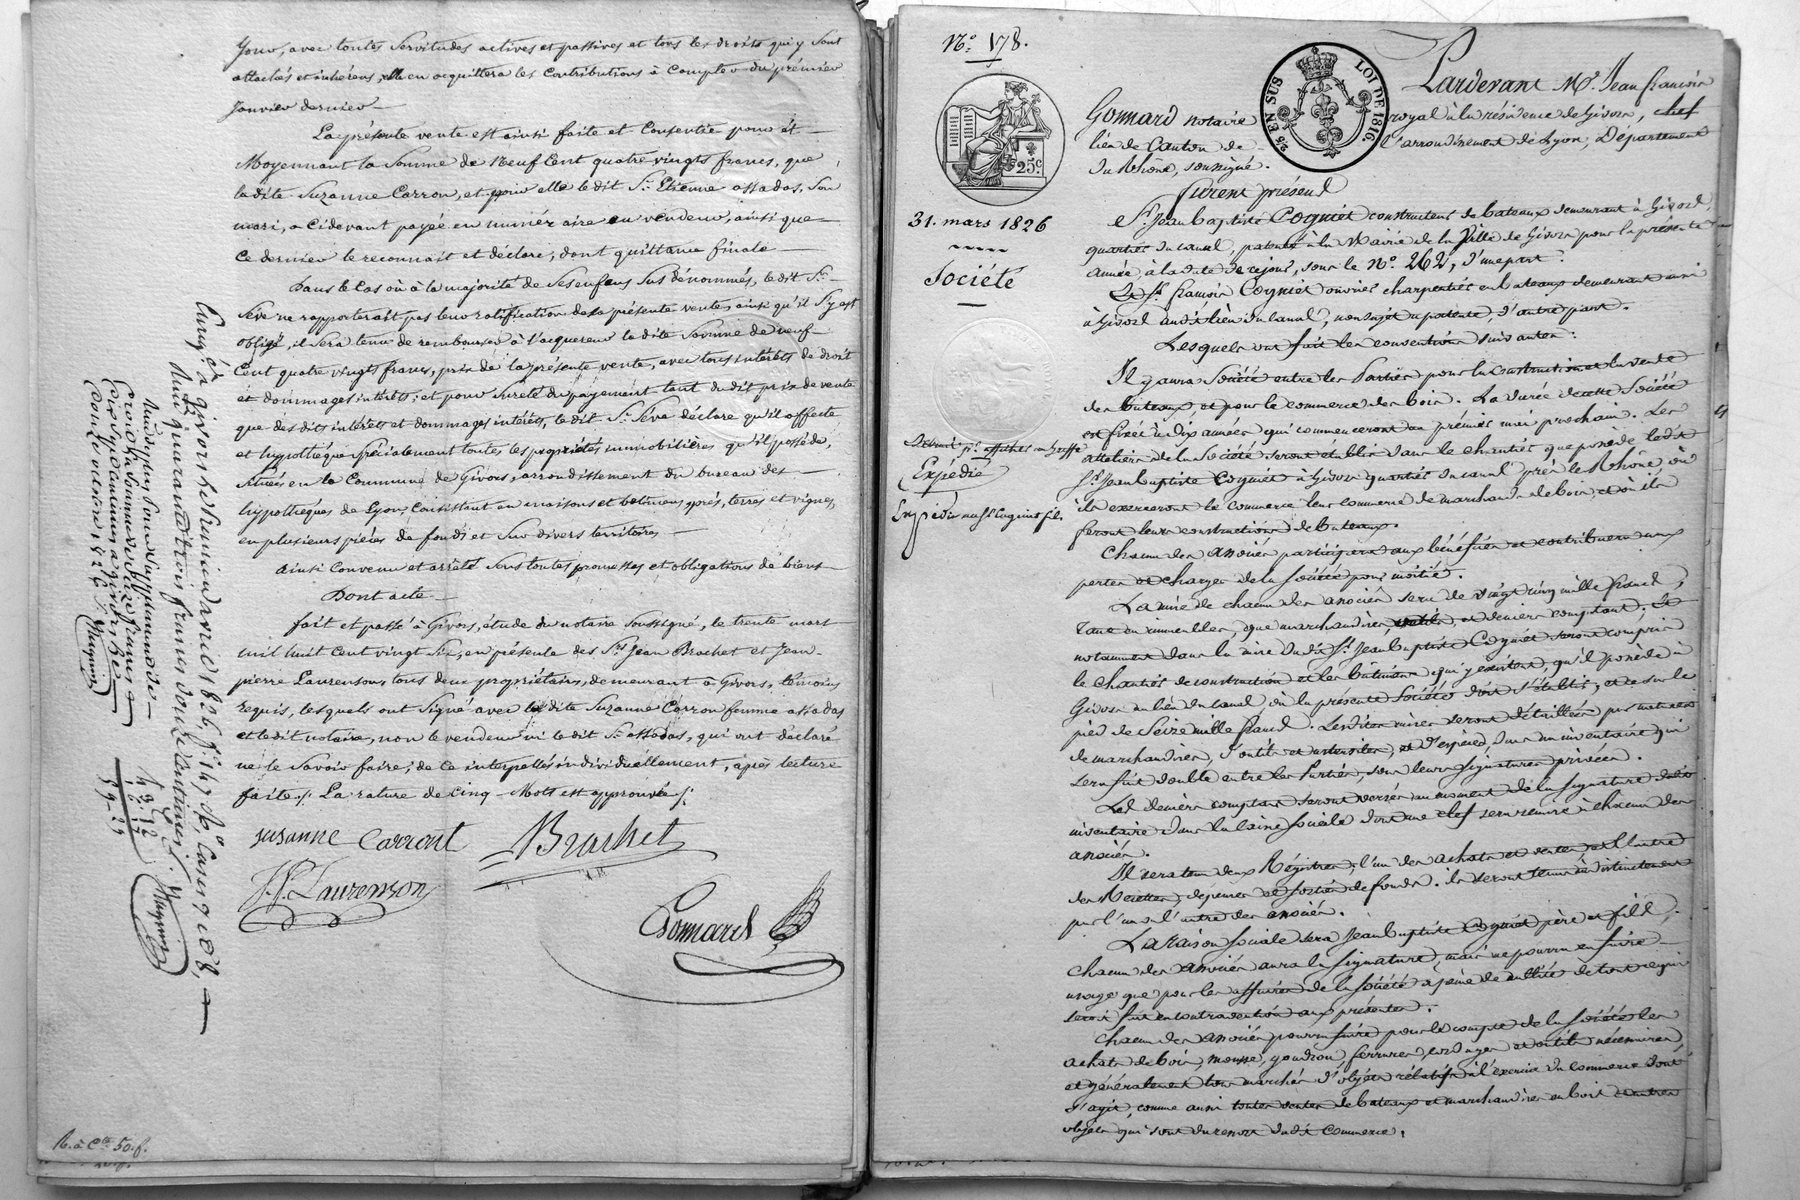 Jour, avec toutes Servitudes actives et passives et tous les droits qui y sont
attachés et inhérens, elle en acquittera les Contributions à Compter du prémier
Janvier dernier —
La présente vente est ainsi faite et Consentie pour et
Moyennant la Somme de Neuf Cent quatre vingts francs, que
la dite Suzanne Carron, et pour elle le dit Sr. Etienne assadas, Son
mari, a cidevant payée en numéraire au vendeur, ainsi que
Ce dernier le reconnait et déclare; dont quittance finale —
Dans le Cas où à la majorité de Ses enfans Sus dénommés, le dit Sr.
Séve ne rapporterait pas leur ratification de la présente vente, ainsi qu'il S'y est
obligé, il Sera tenu de rembourser à l'acquereur la dite Somme de neuf
Cent quatre vingts francs, prix de la présente vente, avec tous intérêts de droit
et dommages intérêts; et pour sureté du payement tant du dit prix de vente
que des dits intérêts et dommages intérêts, le dit Sr. Séve déclare qu'il affecte
et hypothéque Spécialement toutes les propriétés immobilières qu'il posséde,
Situées en la Commune de Givors, arrondissement du bureau des
hypothéques de Lyon, Consistant en maisons et batimens, prés, terres et vignes,
en plusieurs piéces de fonds et Sur divers territoires —
Ainsi Convenu et arrêté Sous toutes promesses et obligations de biens
Dont acte —
fait et passé à Givors, étude du notaire Soussigné, le trente mars
mil huit Cent vingt Six, en présence des Srs. Jean Brachet et Jean
pierre Laurenson, tous deux propriétaires, demeurant à Givors, témoins
requis, lesquels ont Signé avec la dite Suzanne Carron femme assadas
et le dit notaire, non le vendeur ni le dit Sr. assadas, qui ont déclaré
ne le Savoir faire; de Ce interpellés individuellement, après lecture
faite ./. La rature de Cinq Mots est approuvée ./.
Susanne Carront
Brachet
J. P. Laurenson
Gonnard
Enreg. à Givors le huit avril 1826, fo. 147 Ro. Cases 7 et 8,
quarante trois francs douze Centimes
43. 12
R. à Cte 50. f.
No. 178.
25 EN SUS
LOI DE 1816.
25c.
31. mars 1826
Société
Expédié
Pardevant Me. Jean francois
Gonnard notaire royal à la résidence de Givors, chef
lieu de Canton de l'arrondissement de Lyon, Département
du Rhône, soussigné.
furent présens
Sr. Jean Baptiste Cogniet constructeur de bateaux demeurant à Givors,
quartier du canal, patenté à la Mairie de la Ville de Givors pour la présente
année, à la date de cejour, sous le No. 262, d'une part.
Et Sr. francois Cogniet ouvrier charpentier en bateaux demeurant aussi
à Givors audit lieu du canal, non sujet a patente, d'autre part.
Lesquels ont fait les conventions suivantes:
Il y aura Société entre les Parties pour la construction et la vente
des bateaux, et pour le commerce des bois. La durée de cette Société
est fixée à dix années qui commenceront au prémier mai prochain. Les
atteliers de la Société seront établis dans le chantier que posséde ledit
Sr. Jean Baptiste Cogniet à Givors quartier du canal près le Rhône, où
ils exerceront le commerce leur commerce de marchands de bois, et où ils
feront leurs constructions de bateaux.
Chacun des associés participera aux bénéfices et contribuera aux
pertes et charges de la société pour moitié.
La mise de chacun des associés sera de vingt cinq mille francs,
tant en immeubles, que marchandises, et deniers comptant. Et
notamment dans la mise dudit Sr. Jean Baptiste Cogniet seront compris
le chantier de construction et les bâtimens qui y existent, qu'il posséde à
Givors au lieu du canal, où la présente Société doit s'établir, et ce sur le
pied de Seize mille francs. Lesdites mises seront détaillées par natures
de marchandises, d'outils et ustensiles, et d'espèces, dans un inventaire qui
sera fait double entre les Parties, sous leurs signatures privées.
Les deniers comptans seront versés au moment de la signature dudit
inventaire dans la caisse sociale dont une clef sera remise à chacun des
associés.
Il sera tenu deux Régistres, l'un des achats et ventes et l'autre
des Recettes, depenses et sorties de fonds. ils seront tenus indistinctement
par l'un ou l'autre des associés.
La Raison sociale sera Jean Baptiste Cogniet père et fils.
chacun des associés aura la signature, mais ne pourra en faire
usage que pour les affaires de la Société à peine de nullité de tout ce qui
serait fait en contravention aux présentes.
Chacun des associés pourra faire pour le compte de la société les
achats de bois, mousse, goudron, ferrures, cordages et outils nécessaires,
et généralement tous marchés d'objets rélatifs à l'exercice du commerce dont
s'agit, comme aussi toutes ventes de bateaux et marchandises en bois et autres
objets qui sont du ressort dudit commerce.